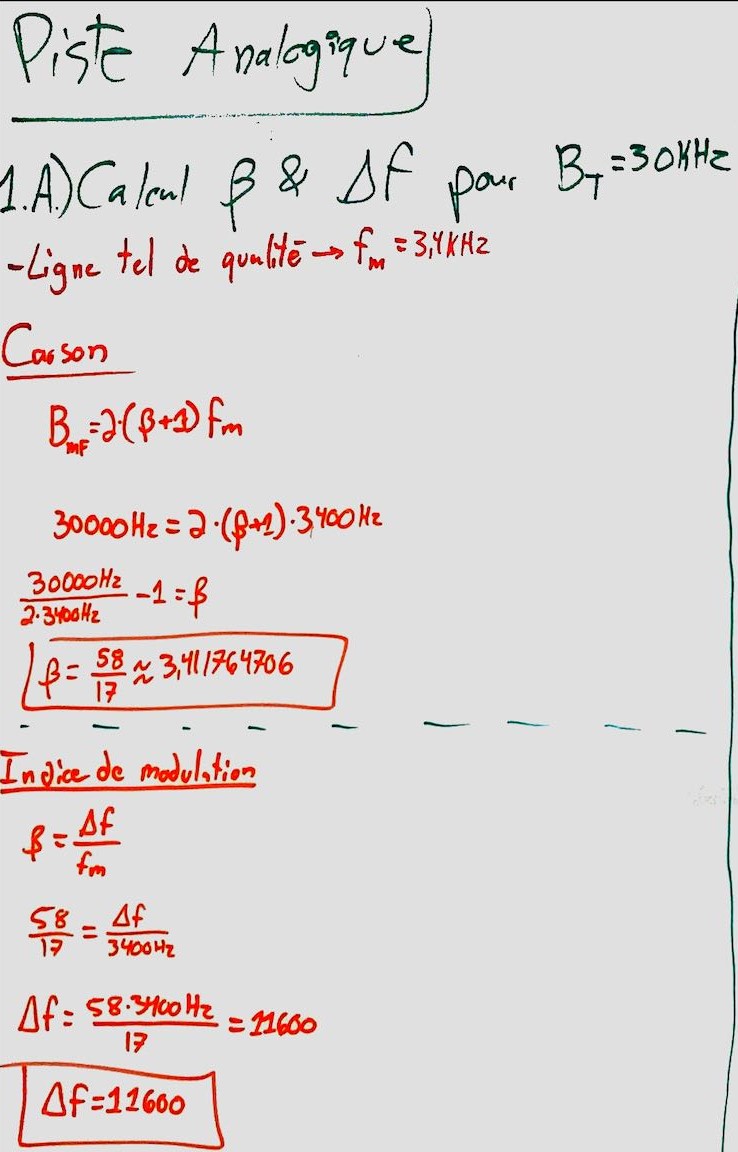 Piste Analogique
1.A) Calcul β & Δf pour B_T = 30KHz
- Ligne tel de qualité → f_m = 3,4KHz
Carson
B_MF = 2·(β+1) f_m
30000Hz = 2·(β+1)·3400Hz
30000Hz/2·3400Hz - 1 = β
β = 58/17 ≈ 3,411764706
Indice de modulation
β = Δf/f_m
58/17 = Δf/3400Hz
Δf = 58·3400Hz/17 = 11600
Δf = 11600